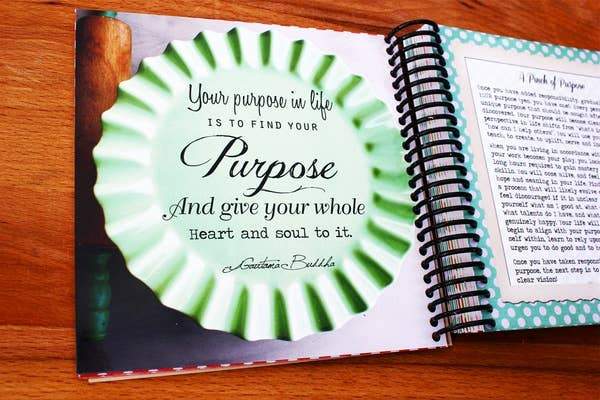 Your purpose in life
IS TO FIND YOUR
Purpose
And give your whole
Heart and soul to it.
Gautama Buddha
A Pinch of Purpose
Once you have added responsibility, gradual
100% purpose (yes, you have one!) Every
unique purpose that should be sought after
discovered. Your purpose will become clear
perspective in life shifts from "what's in
"how can I help others". You will use your
teach, to create, to uplift, serve and in
When you are living in accordance with
your work becomes your play. You
long hours required to gain mastery
skill. You will come alive, and feel
hope and meaning in your life. Find
a process that will likely evolve
feel discouraged if it is unclear
yourself what am I good at, what
what talents do I have, and what
genuinely happy. Your life will
begin to align with your purpose
self within, learn to rely upon
urges you to do good and to
Once you have taken respons
purpose, the next step is to
clear vision!